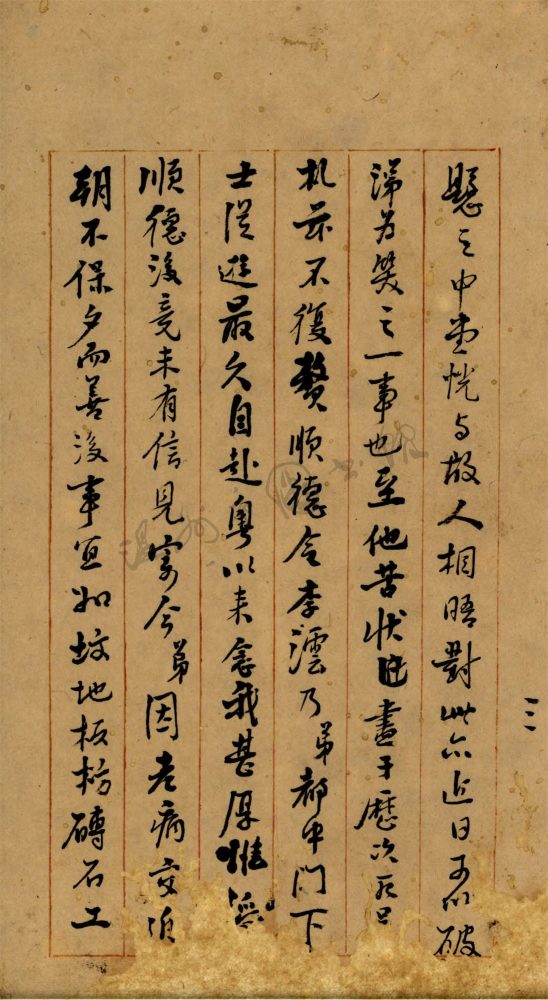 懸之中堂恍与故人相晤對此亦近日可以破
涕为笑之一事也至他苦状已盡于歷次
札茲不復贅順德令李澐乃弟都中門下
士從遊最久自赴粤以来念我甚厚惟
順德後竟未有信見寄今弟因老病交
朝不保夕而善後事宜如坟地板枋磚石工
三